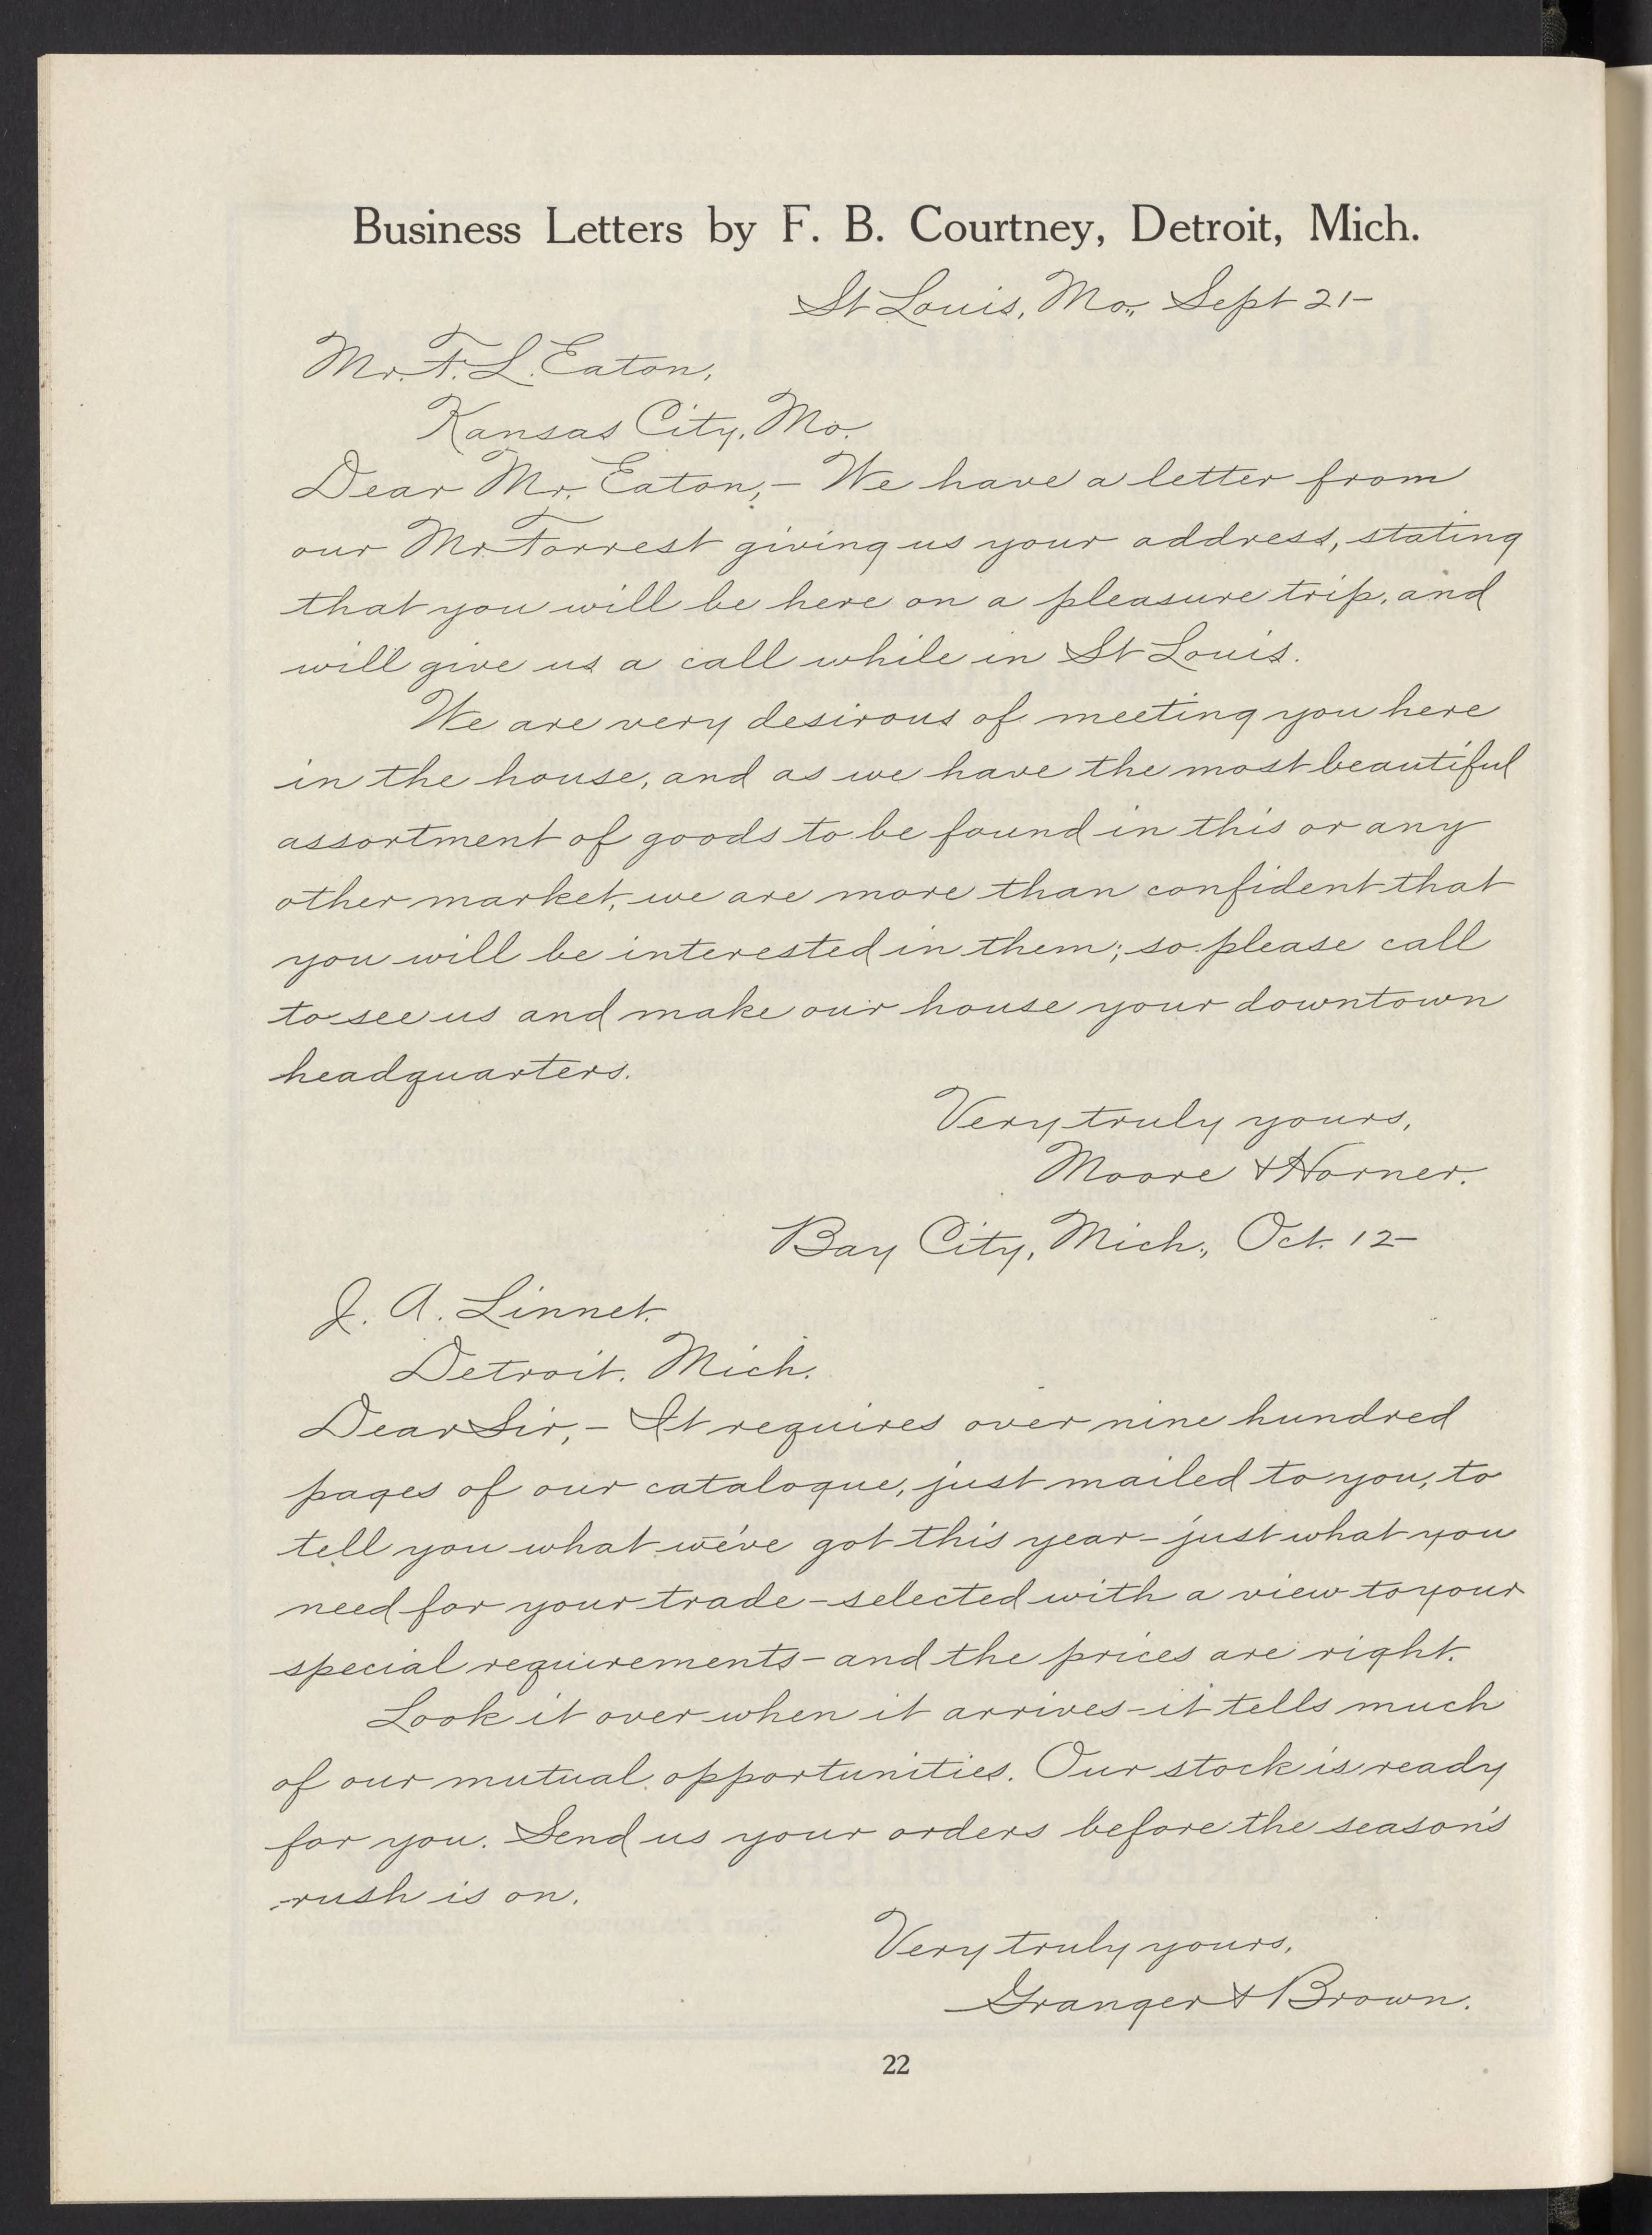 Business Letters by F. B. Courtney, Detroit, Mich.
St Louis, Mo., Sept 21—
Mr. F. L. Eaton,
Kansas City, Mo.
Dear Mr. Eaton;— We have a letter from
our Mr. Forrest giving us your address, stating
that you will be here on a pleasure trip, and
will give us a call while in St Louis.
We are very desirous of meeting you here
in the house, and as we have the most beautiful
assortment of goods to be found in this or any
other market, we are more than confident that
you will be interested in them; so please call
to see us and make our house your downtown
headquarters.
Very truly yours,
Moore & Horner.
Bay City, Mich., Oct. 12—
J. A. Linnet.
Detroit. Mich.
Dear Sir;— It requires over nine hundred
pages of our catalogue, just mailed to you, to
tell you what we've got this year—just what you
need for your trade—selected with a view to your
special requirements—and the prices are right.
Look it over when it arrives—it tells much
of our mutual opportunities. Our stock is ready
for you. Send us your orders before the season's
rush is on.
Very truly yours,
Granger & Brown.
22